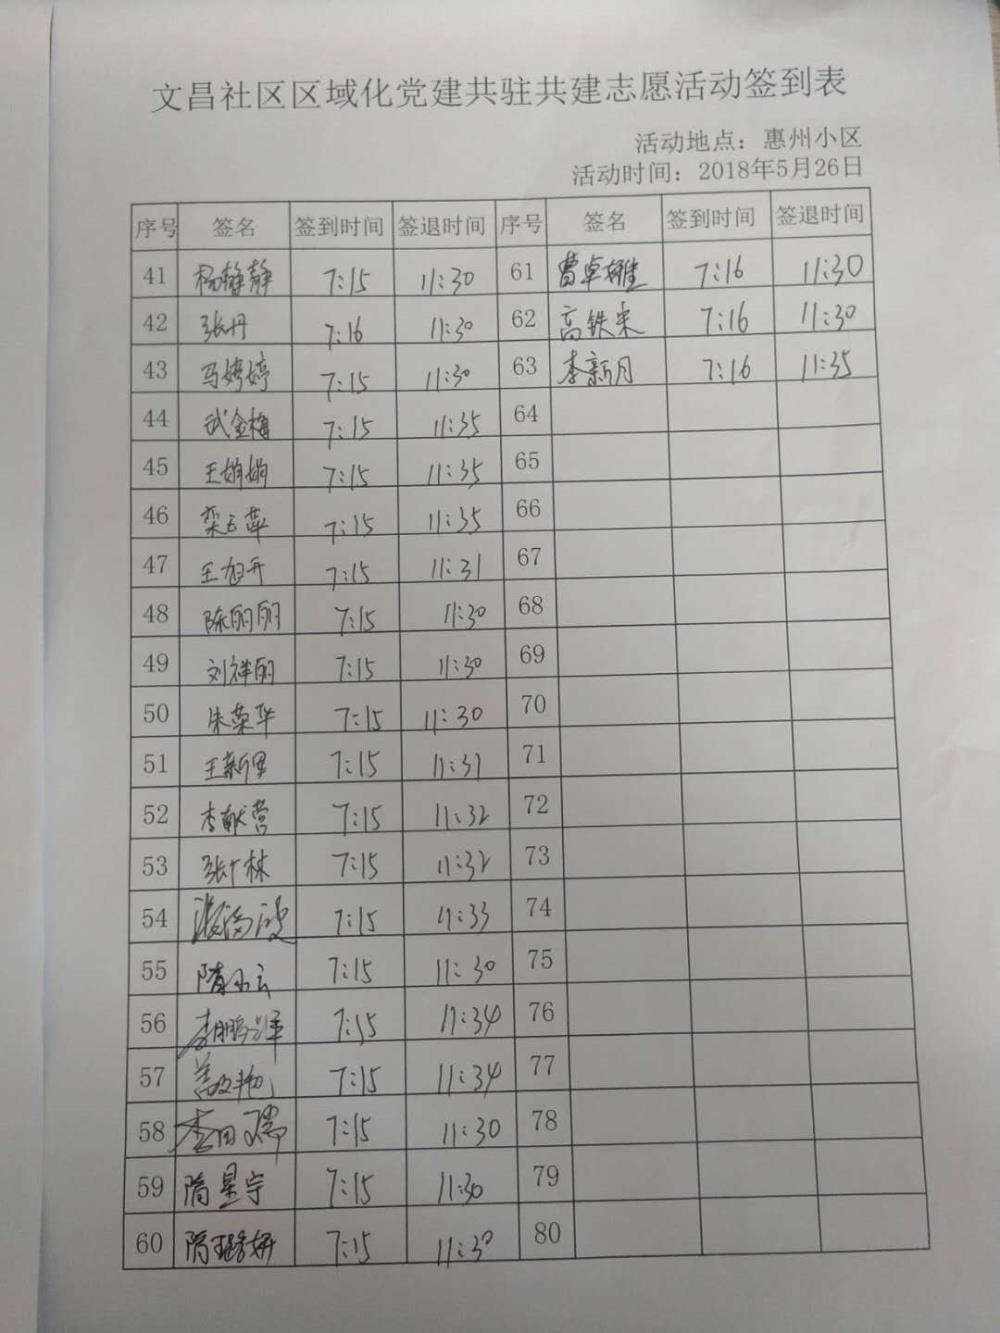 文昌社区区域化党建共驻共建志愿活动签到表
活动地点：惠州小区
活动时间：2018年5月26日
序号 签名 签到时间 签退时间 序号 签名 签到时间 签退时间
41 杨静静 7:15 11:30 61 曹卓 7:16 11:30
42 张丹 7:16 11:30 62 高铁 7:16 11:30
43 马婷婷 7:15 11:30 63 李新月 7:16 11:35
44 武金梅 7:15 11:35 64
45 王娟娟 7:15 11:35 65
46 栾云萍 7:15 11:35 66
47 王旭升 7:15 11:31 67
48 陈丽丽 7:15 11:30 68
49 刘祥丽 7:15 11:30 69
50 朱荣华 7:15 11:30 70
51 王新军 7:15 11:31 71
52 李献营 7:15 11:32 72
53 张林 7:15 11:32 73
54 7:15 11:33 74
55 隋小云 7:15 11:30 75
56 李鹏泽 7:15 11:34 76
57 7:15 11:34 77
58 李田瑞 7:15 11:30 78
59 隋星宇 7:15 11:30 79
60 隋妍 7:15 11:30 80